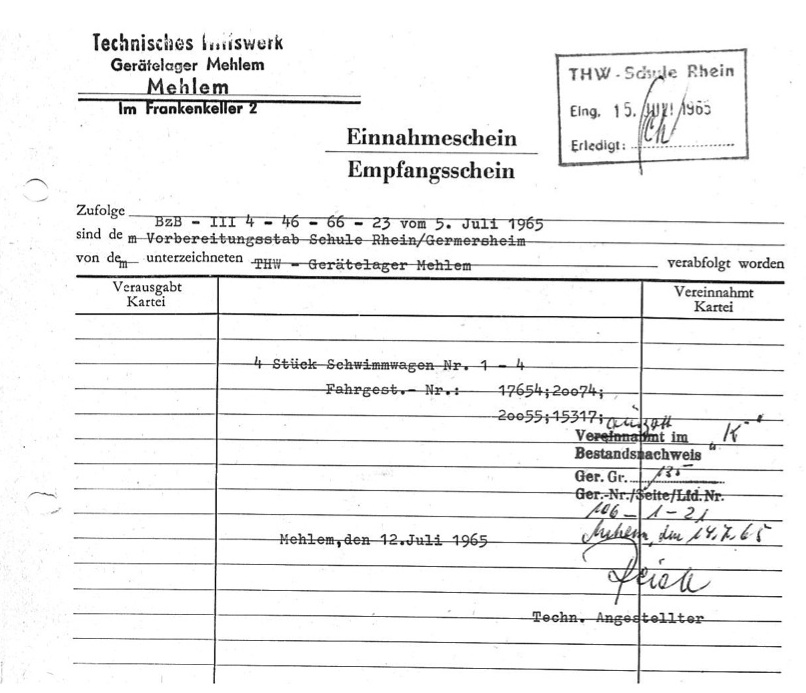 Technisches Hilfswerk
Gerätelager Mehlem
Mehlem
Im Frankenkeller 2
THW - Schule Rhein
Eing. 15. 1965
Erledigt:
Einnahmeschein
Empfangsschein
Zufolge BzB - III 4 - 46 - 66 - 23 vom 5. Juli 1965
sind de m Vorbereitungsstab Schule Rhein/Germersheim
von dem unterzeichneten THW - Gerätelager Mehlem verabfolgt worden
Verausgabt Kartei
Vereinnahmt Kartei
4 Stück Schwimmwagen Nr. 1 - 4
Fahrgest.- Nr.: 17654;20074;
20055;15317;
Vereinnahmt im "K"
Bestandsnachweis
Ger. Gr. 135
Ger.-Nr./Seite/Lfd. Nr.
106 - 1 - 21
Mehlem,den 12.Juli 1965
Mehlem, den 14.7.65
Techn. Angestellter